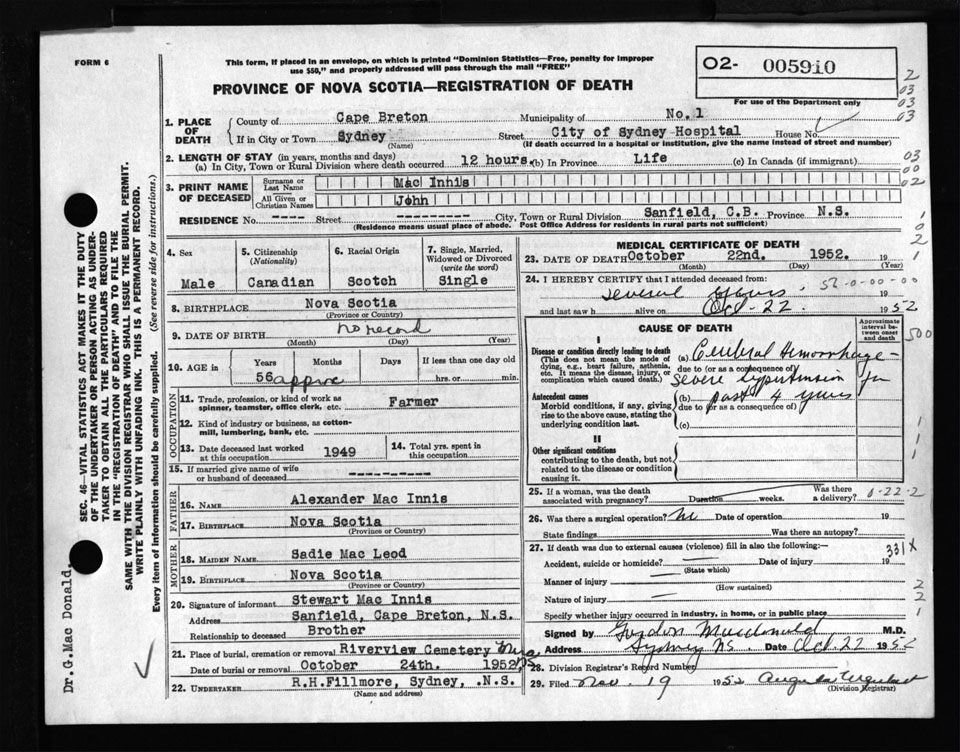 FORM 6
This form, if placed in an envelope, on which is printed "Dominion Statistics—Free, penalty for improper
use $50," and properly addressed will pass through the mail "FREE"
PROVINCE OF NOVA SCOTIA—REGISTRATION OF DEATH
O2- 005910
For use of the Department only
2
03
03
03
1. PLACE OF DEATH
County of Cape Breton Municipality of No. 1
If in City or Town Sydney Street City of Sydney Hospital House No.
(Name) (If death occurred in a hospital or institution, give the name instead of street and number)
2. LENGTH OF STAY (in years, months and days)
(a) In City, Town or Rural Division where death occurred 12 hours. (b) In Province Life (c) In Canada (if immigrant)
03
00
02
3. PRINT NAME OF DECEASED
Surname or Last Name Mac Innis
All Given or Christian Names John
RESIDENCE No. ---- Street ---------- City, Town or Rural Division Sanfield, C.B. Province N.S.
(Residence means place of abode. Post Office Address for residents in rural parts not sufficient)
4. Sex Male
5. Citizenship (Nationality) Canadian
6. Racial Origin Scotch
7. Single, Married, Widowed or Divorced (write the word) Single
8. BIRTHPLACE Nova Scotia
(Province or Country)
9. DATE OF BIRTH no record
(Month) (Day) (Year)
10. AGE in Years Months Days If less than one day old
56 approx hrs. or min.
OCCUPATION
11. Trade, profession, or kind of work as spinner, teamster, office clerk, etc. Farmer
12. Kind of industry or business, as cotton-mill, lumbering, bank, etc.
13. Date deceased last worked at this occupation 1949
14. Total yrs. spent in this occupation
15. If married give name of wife or husband of deceased ---------
FATHER
16. NAME Alexander Mac Innis
17. BIRTHPLACE Nova Scotia
(Province or Country)
MOTHER
18. MAIDEN NAME Sadie Mac Leod
19. BIRTHPLACE Nova Scotia
(Province or Country)
20. Signature of informant Stewart Mac Innis
Address Sanfield, Cape Breton, N.S.
Relationship to deceased Brother
21. Place of burial, cremation or removal Riverview Cemetery Mira
Date of burial or removal October 24th. 1952 NS
22. UNDERTAKER R.H.Fillmore, Sydney, .N.S.
(Name and address)
MEDICAL CERTIFICATE OF DEATH
23. DATE OF DEATH October 22nd. 1952. 19
(Month) (Day) (Year)
24. I HEREBY CERTIFY that I attended deceased from:
several hours 52-0-00-00 19
and last saw h alive on Oct-22 1952
CAUSE OF DEATH
Approximate interval between onset and death
500
I
Disease or condition directly leading to death
(This does not mean the mode of dying, e.g., heart failure, asthenia, etc. It means the disease, injury, or complication which caused death.)
(a) Cerebral Hemorrhage -
due to (or as a consequence of)
Severe hypertension for
Antecedent causes
Morbid conditions, if any, giving rise to the above cause, stating the underlying condition last.
(b) past 4 years
due to (or as a consequence of)
(c)
II
Other significant conditions
contributing to the death, but not related to the disease or condition causing it.
25. If a woman, was the death associated with pregnancy? Duration weeks. Was there a delivery? 0-22-2
26. Was there a surgical operation? Date of operation 19
State findings Was there an autopsy?
27. If death was due to external causes (violence) fill in also the following: 331X
Accident, suicide or homicide? Date of injury 19
(State which)
Manner of injury
(How sustained)
Nature of injury
Specify whether injury occurred in industry, in home, or in public place
Signed by Gordon Macdonald M.D.
Address Sydney NS Date Oct. 22 1952
28. Division Registrar's Record Number
29. Filed Nov. 19 1952
(Division Registrar)
SEC. 46—VITAL STATISTICS ACT MAKES IT THE DUTY
OF THE UNDERTAKER OR PERSON ACTING AS UNDER-
TAKER TO OBTAIN ALL THE PARTICULARS REQUIRED
IN THE "REGISTRATION OF DEATH" AND TO FILE THE
SAME WITH THE DIVISION REGISTRAR WHO SHALL ISSUE THE BURIAL PERMIT.
WRITE PLAINLY WITH UNFADING INK. THIS IS A PERMANENT RECORD.
Every item of Information should be carefully supplied. (See reverse side for instructions.)
Dr. G. Mac Donald.